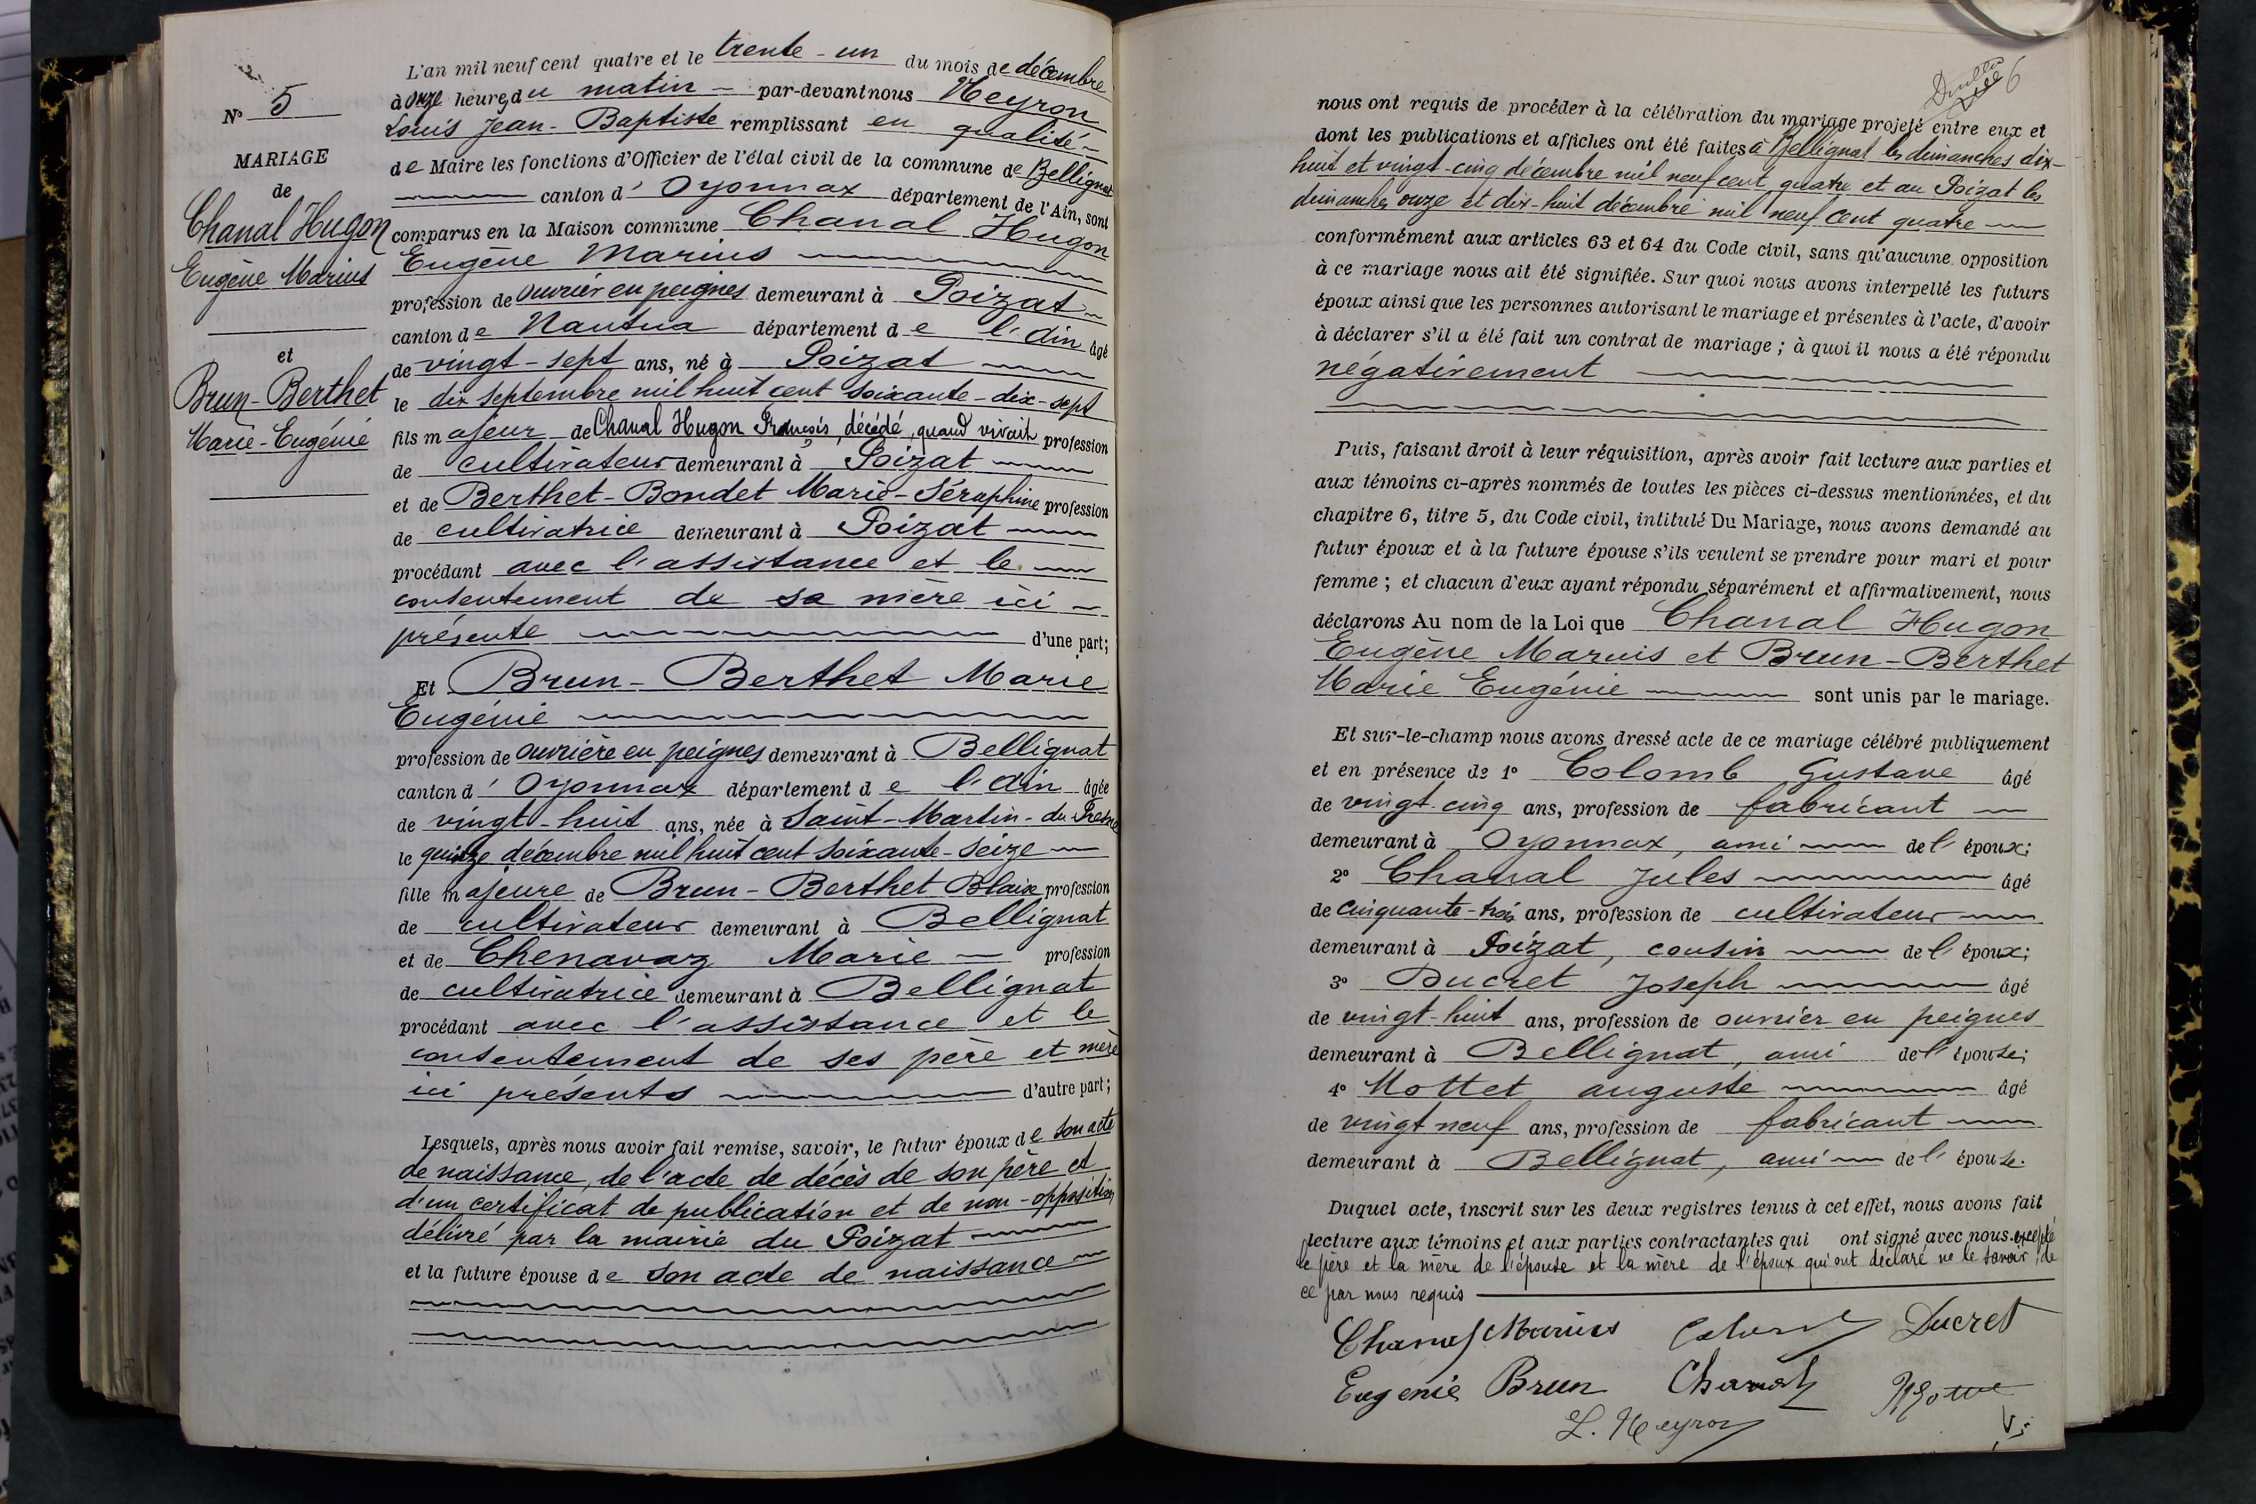 N° 5
MARIAGE
de
Chanal Hugon
Eugène Marius
et
Brun-Berthet
Marie-Eugénie
L'an mil neuf cent quatre et le trente-un du mois de décembre
à onze heures du matin par-devant nous Neyron
Louis Jean-Baptiste remplissant en qualité
de Maire les fonctions d'Officier de l'état civil de la commune de Bellignat
canton d' Oyonnax département de l'Ain, sont
comparus en la Maison commune Chanal Hugon
Eugène Marius
profession de ouvrier en peignes demeurant à Poizat
canton de Nantua département de l'Ain âgé
de vingt-sept ans, né à Poizat
le dix septembre mil huit cent soixante-dix-sept
fils majeur de Chanal Hugon François, décédé, quand vivait profession
de cultivateur demeurant à Poizat
et de Berthet-Bondet Marie-Séraphine profession
de cultivatrice demeurant à Poizat
procédant avec l'assistance et le
consentement de sa mère ici
présente d'une part;
Et Brun-Berthet Marie
Eugénie
profession de ouvrière en peignes demeurant à Bellignat
canton d' Oyonnax département de l'Ain âgée
de vingt-huit ans, née à Saint-Martin-du-Fresne
le quinze décembre mil huit cent soixante-seize
fille majeure de Brun-Berthet Blaise profession
de cultivateur demeurant à Bellignat
et de Chenavaz Marie profession
de cultivatrice demeurant à Bellignat
procédant avec l'assistance et le
consentement de ses père et mère
ici présents d'autre part;
Lesquels, après nous avoir fait remise, savoir, le futur époux de son acte
de naissance, de l'acte de décès de son père et
d'un certificat de publication et de non-opposition
délivré par la mairie du Poizat
et la future épouse de son acte de naissance
6
nous ont requis de procéder à la célébration du mariage projeté entre eux et
dont les publications et affiches ont été faites à Bellignat les dimanches dix-
huit et vingt-cinq décembre mil neuf cent quatre et au Poizat les
dimanches onze et dix-huit décembre mil neuf cent quatre
conformément aux articles 63 et 64 du Code civil, sans qu'aucune opposition
à ce mariage nous ait été signifiée. Sur quoi nous avons interpellé les futurs
époux ainsi que les personnes autorisant le mariage et présentes à l'acte, d'avoir
à déclarer s'il a été fait un contrat de mariage; à quoi il nous a été répondu
négativement
Puis, faisant droit à leur réquisition, après avoir fait lecture aux parties et
aux témoins ci-après nommés de toutes les pièces ci-dessus mentionnées, et du
chapitre 6, titre 5, du Code civil, intitulé Du Mariage, nous avons demandé au
futur époux et à la future épouse s'ils veulent se prendre pour mari et pour
femme; et chacun d'eux ayant répondu séparément et affirmativement, nous
déclarons Au nom de la Loi que Chanal Hugon
Eugène Maruis et Brun-Berthet
Marie Eugénie sont unis par le mariage.
Et sur-le-champ nous avons dressé acte de ce mariage célébré publiquement
et en présence de 1° Colomb Gustave âgé
de vingt-cinq ans, profession de fabricant
demeurant à Oyonnax, ami de l'époux;
2° Chanal Jules âgé
de cinquante-trois ans, profession de cultivateur
demeurant à Poizat, cousin de l'époux;
3° Ducret Joseph âgé
de vingt-huit ans, profession de ouvrier en peignes
demeurant à Bellignat, ami de l'épouse;
4° Mottet auguste âgé
de vingt neuf ans, profession de fabricant
demeurant à Bellignat, ami de l'épouse.
Duquel acte, inscrit sur les deux registres tenus à cet effet, nous avons fait
lecture aux témoins et aux parties contractantes qui ont signé avec nous excepté
le père et la mère de l'épouse et la mère de l'époux qui ont déclaré ne le savoir, de
ce par nous requis
Chanal Marius Ducret
Eugenie Brun Chanal
L. Neyron